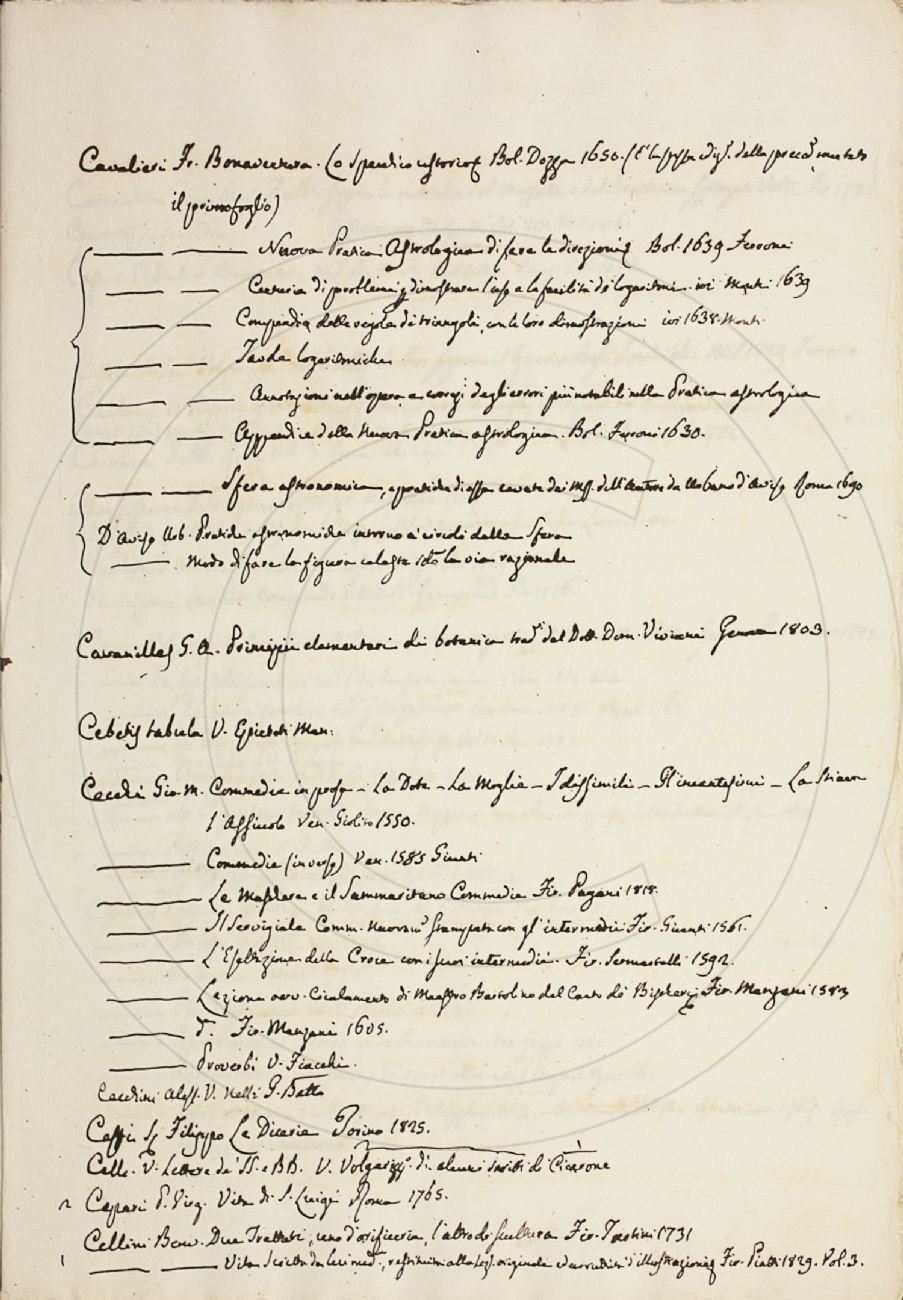 Cavalieri Fr. Bonaventura. Lo Specchio ustorio Bol. Dozza 1650. (è la stessa ediz. della preced. mutato
il primo foglio)
Nuova Pratica Astrologica di fare le direzioni Bol. 1639 Ferroni
Centuria di problemi p. dimostrare l'uso e la facilità de' logaritmi ivi Monti 1639
Compendio delle regole de' triangoli, con le loro dimostrazioni ivi 1638. Monti
Tavole logaritmiche
Annotazioni nell'opera e correz. degli errori più notabili nella Pratica astrologica
Appendice della Nuova Pratica astrologica. Bol. Ferroni 1630.
Sfera astronomica, e pratiche di essa cavate dai Mss. dell'Autore da Urbano d'Aviso Roma 1690
D'Aviso Urb. Pratiche astronomiche intorno a' circoli della Sfera
Modo di fare la figura celeste la via razionale
Cavanilles G. A. Principii elementari di botanica trad. dal Dott. Dom. Viviani Genova 1803.
Cebetis tabula V. Epicteti Man.
Cecchi Gio. M. Commedie in prosa - La Dote - La Moglie - I dissimili - Gl'incantesimi - La Stiava
l'Assiuolo Ven. Giolito 1550.
Commedie (in versi) Ven. 1585 Giunti
Le Maschere e il Sammaritano Commedie Fir. Pagani 1818.
Il Servigiale Comm. nuovam. stampata con gl'intermedii Fir. Giunti 1561.
L'Esaltazione della Croce con i suoi intermedii. Fir. Sermartelli 1592.
Lezione ovv. Cicalamento di Maestro Bartolino dal Canto de' Bischeri Fir. Manzani 1583
d. Fir. Manzani 1605.
Proverbi V. Fiacchi.
Cecchini Aless. V. Nelli G. Batta
Ceffi Ser Filippo Le Dicerie Torino 1825.
Celle V. Lettere de' SS. e BB. V. Volgarizz. di alcuni scritti di Cicerone
2 Cepari P. Virg. Vita di S. Luigi Roma 1765.
Cellini Benv. Due Trattati, uno d'orificeria, l'altro de scultura Fir. Tartini 1731
1 Vita scritta da lui med., restituita alla lez. originale ed arricchita d'illustrazioni Fir. Piatti 1829. Vol. 3.